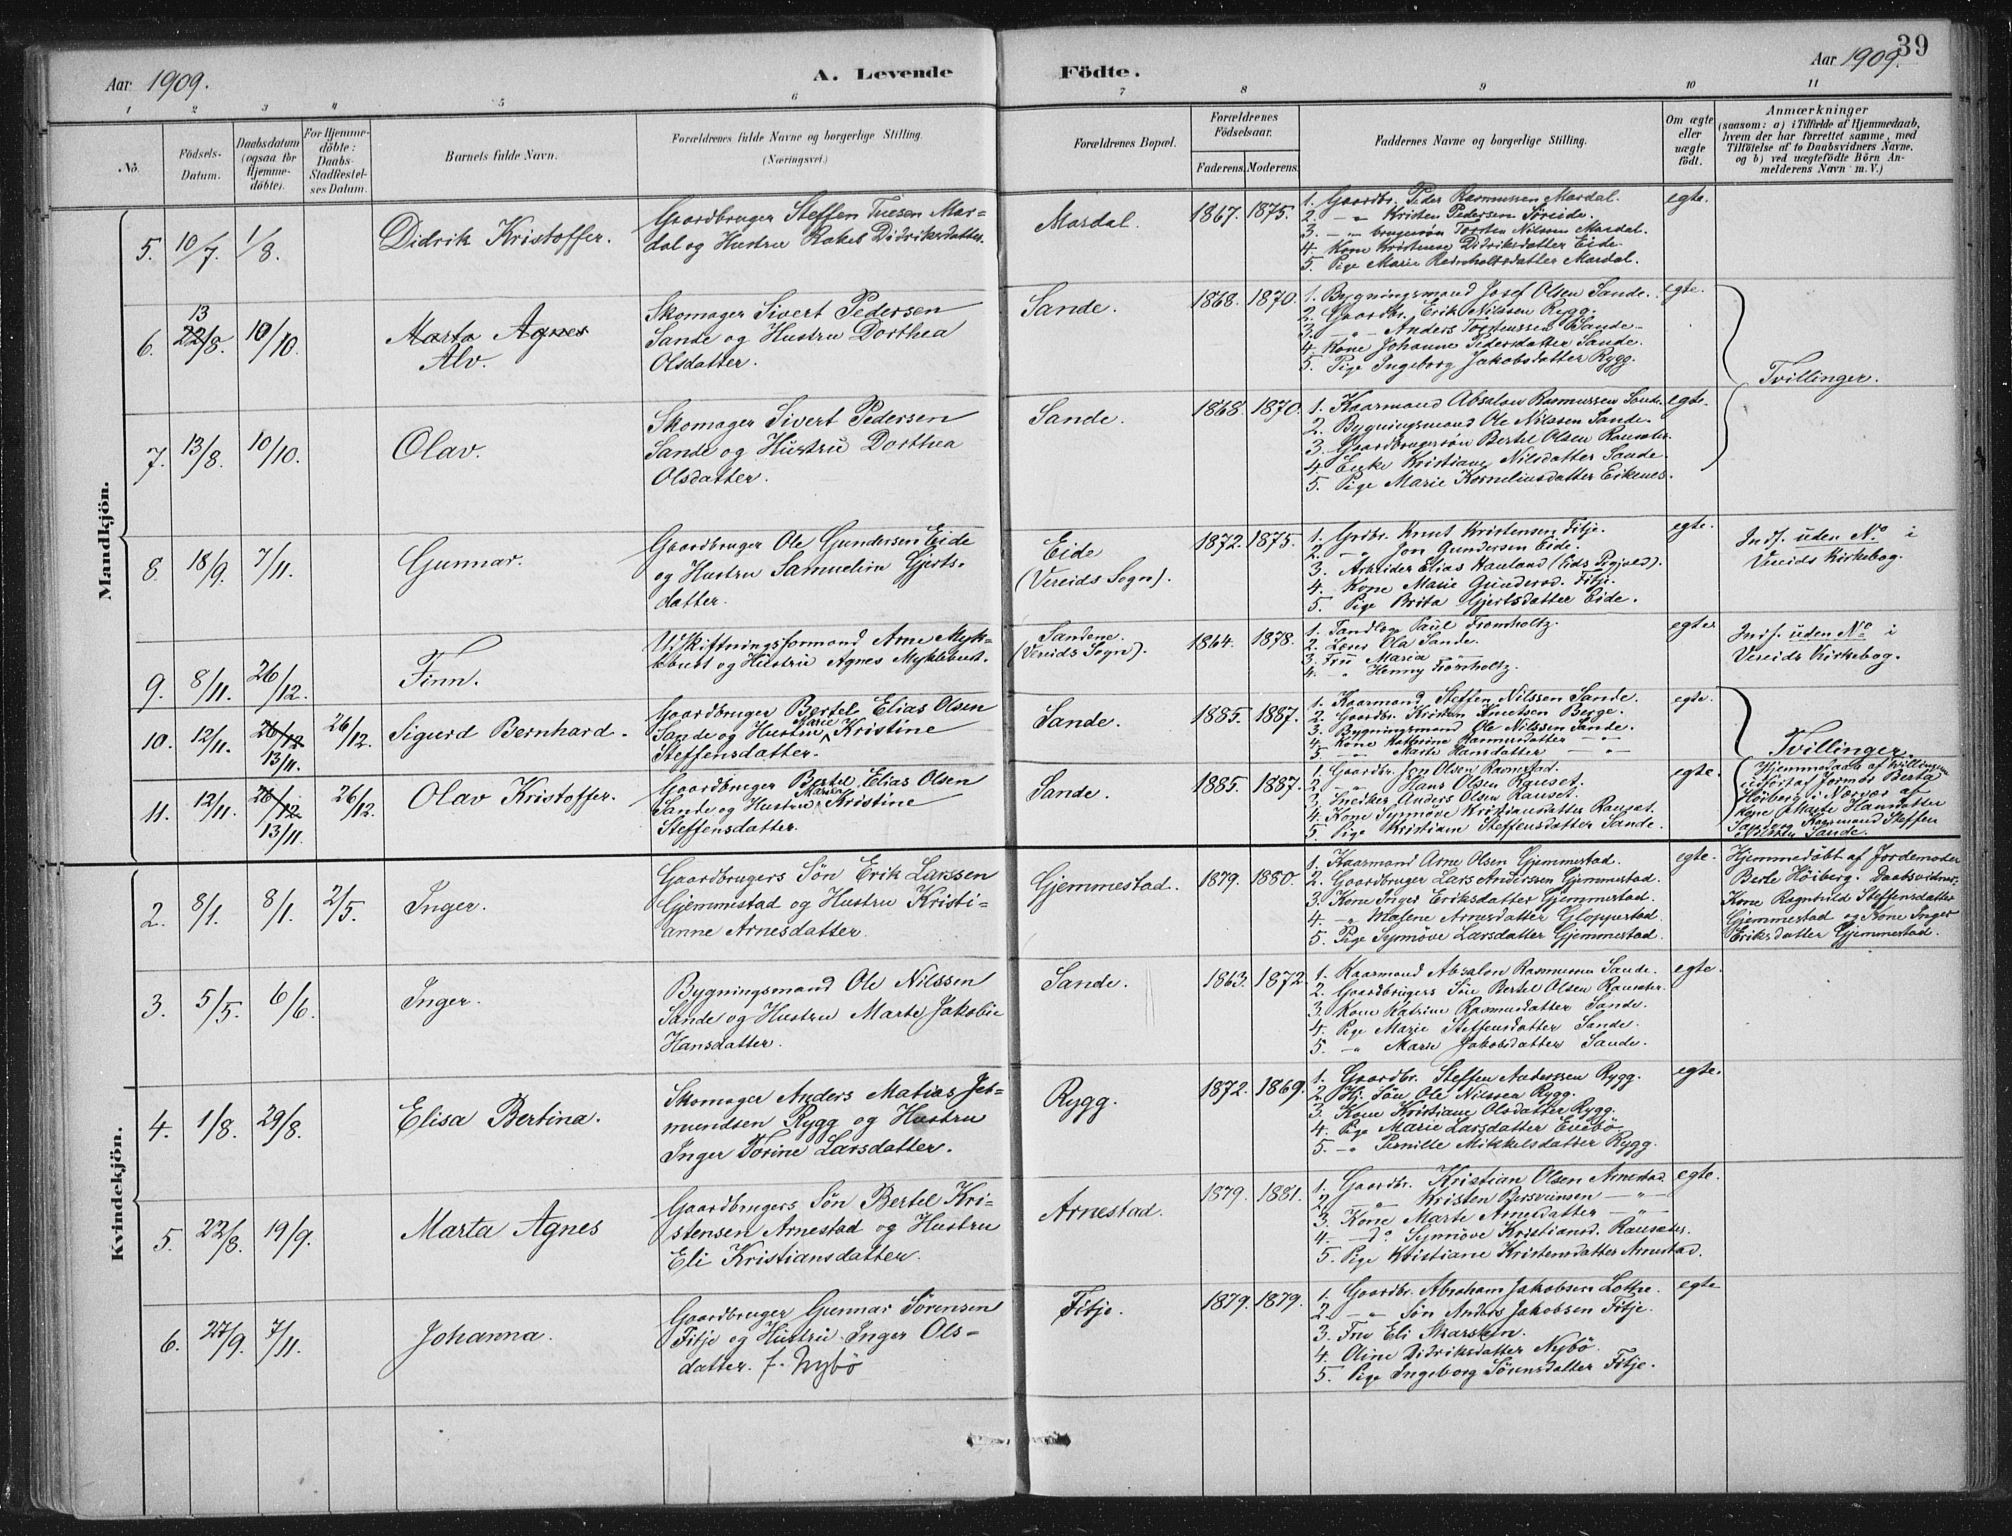 39
Aar 1909. A. Levende Födte. Aar 1909.
1 2 3 4 5 6 7 8 9 10 11
No.
Födsels-Datum.
Daabsdatum (ogsaa for Hjemmedöbte).
For Hjemmedöbte: Daabs-Stadfæstelses Datum.
Barnets fulde Navn.
Forældrenes fulde Navne og borgerlige Stilling. (Næringsvei.)
Forældrenes Bopæl.
Forældrenes Födselsaar.
Faderens. Moderens.
Faddernes Navne og borgerlige Stilling.
Om ægte eller uægte födt.
Anmærkninger
(saasom: a) i Tilfælde af Hjemmedaab, hvem der har forrettet samme, med Tilföielse af to Daabsvidners Navne, og b) ved uægtefödte Börn Anmelderens Navn m. V.)
Mandkjön.
5. 10/7. 1/8. Didrik Kristoffer.
Gaardbruger Steffen Tuesen Mar-
dal og Hustru Rakel Didriksdatter.
Mardal. 1867. 1875.
1. Gaardbr. Peder Rasmussen Mardal.
2. -"- Kristen Pedersen Söreide.
3. -"- brugersön Torsten Nilssen Mardal.
4. Kone Kristense Didriksdatter Eide.
5. Pige Marie Reinholtsdatter Mardal.
egte.
6. 13 22/8. 10/10. Marta Agnes
Alv.
Skomager Sivert Pedersen
Sande og Hustru Dorthea
Olsdatter.
Sande. 1868. 1870.
1. Bygningsmand Josef Olsen Sande.
2. Gaardbr. Erik Nilssen Rygg.
3. -"- Anders Torstenssen Sande.
4. Kone Johanne Pedersdatter Sande.
5. Pige Ingeborg Jakobsdatter Rygg.
egte.
Tvillinger.
7. 13/8. 10/10. Olav.
Skomager Sivert Pedersen
Sande og Hustru Dorthea
Olsdatter.
Sande. 1868. 1870.
1. Kaarmand Absalon Rasmussen Sande.
2. Bygningsmand Ole Nilssen Sande.
3. Gaardbrugersön Bertel Olsen Rauseter.
4. Enke Kristiane Nilsdatter Sande.
5. Pige Marie Korneliusdatter Eikenes.
egte.
8. 18/9. 7/11. Gunnar.
Gaardbruger Ole Gundersen Eide
og Hustru Samueline Gjerts-
datter.
Eide
(Vereids Sogn).
1872. 1875.
1. Grdbr. Knut Kristensen Fitje.
2. " Jon Gundersen Eide.
3. Arbeider Elias Hauland (Eids Pgjeld).
4. Kone Marie Gundersd. Fitje.
5. Pige Brita Gjertsdatter Eide.
egte.
Indf. uden No i
Vereids Kirkebog.
9. 8/11. 26/12. Finn.
Udskiftningsformand Arne Myk-
lebust og Hustru Agnes Myklebust.
Sandene.
(Vereids Sogn).
1864. 1878.
1. Tandlæge Paul Fromholtz.
2. Lærer Ola Sande.
3. Fru Maria -"-
4. " Henny Fromholtz.
egte.
Indf. uden No i
Vereids Kirkebog.
10. 12/11. 26/12 13/11. 26/12. Sigurd Bernhard.
Gaardbruger Bertel Elias Olsen
Sande og Hustru Marie Kristine
Steffensdatter.
Sande. 1885. 1887.
1. Kaarmand Steffen Nilssen Sande.
2. Gaardbr. Kristen Knutsen Berge.
3. Bygningsmand Ole Nilssen Sande.
4. Kone Katrine Rasmusdatter -"-
5. " Marte Hansdatter -"-
egte.
Tvillinger
11. 12/11. 26/12 13/11. 26/12. Olav Kristoffer.
Gaardbruger Bertel Elias Olsen
Sande og Hustru Marie Kristine
Steffensdatter.
Sande. 1885. 1887.
1. Gaardbr. Jon Olsen Ramstad.
2. " Hans Olsen Rauset.
3. Snedker Anders Olsen Rauset.
4. Kone Synnöve Kristiansdatter Rauset.
5. Pige Kristiane Steffensdatter Sande.
egte.
Hjemmedaab af Tvillingerne
udfört af Jormor Berta
Höiberg i Nærvær af
Kone Marte Hansdatter
Sande og Kaarmand Steffen
Nilssen Sande.
Kvindekjön.
2. 8/1. 8/1. 2/5. Inger.
Gaardbrugers Sön Erik Larssen
Gjemmestad og Hustru Kristi-
anne Arnesdatter.
Gjemmestad. 1879. 1880.
1. Kaarmand Arne Olsen Gjemmestad.
2. Gaardbruger Lars Anderssen Gjemmestad.
3. Kone Inger Eriksdatter Gjemmestad.
4. -"- Malene Arnesdatter Gloppestad.
5. Pige Synnöve Larsdatter Gjemmestad.
egte.
Hjemmedöbt af Jordemoder
Berte Höiberg. Daabsvidner:
Kone Ragnhild Steffensdatter
Gjemmestad og Kone Inger
Eriksdatter Gjemmestad.
3. 5/5. 6/6. Inger.
Bygningsmand Ole Nilssen
Sande og Hustru Marte Jakobie
Hansdatter.
Sande. 1863. 1872.
1. Kaarmand Absalon Rasmussen Sande.
2. Gaardbrugers Sön Bertel Olsen Rauseter.
3. Kone Katrine Rasmusdatter Sande.
4. Pige Marie Steffensdatter Sande.
5. -"- Marie Jakobsdatter Sande.
egte.
4. 1/8. 29/8. Elisa Bertina.
Skomager Anders Matias Jet-
mundsen Rygg og Hustru
Inger Torine Larsdatter.
Rygg. 1872. 1869.
1. Gaardbr. Steffen Anderssen Rygg.
2. Hj. Sön Ole Nilssen Rygg.
3. Kone Kristiane Olsdatter Rygg.
4. Pige Marie Larsdatter Evebö.
5. -"- Pernille Mikkelsdatter Rygg.
egte.
5. 22/8. 19/9. Marta Agnes
Gaardbrugers Sön Bertel Kri-
stensen Arnestad og Hustru
Eli Kristiansdatter.
Arnestad. 1879. 1881.
1. Gaardbr. Kristian Olsen Arnestad.
2. " Kristen Bersvensen -"-
3. Kone Marte Arnesdatter -"-
4. -do- Synnöve Kristiansd. Rauseter.
5. Pige Kristiane Kristensdatter Arnestad.
egte.
6. 27/9. 7/11. Johanna.
Gaardbruger Gunnar Sörensen
Fitje og Hustru Inger Ols-
datter. f. Nybö
Fitje. 1879. 1879.
1. Gaardbr. Abraham Jakobsen Lothe.
2. -"- Sön Anders Jakobsen Fitje.
3. Fru Eli Skarstein.
4. Oline Didriksdatter Nybö.
5. Pige Ingeborg Sörensdatter Fitje.
egte